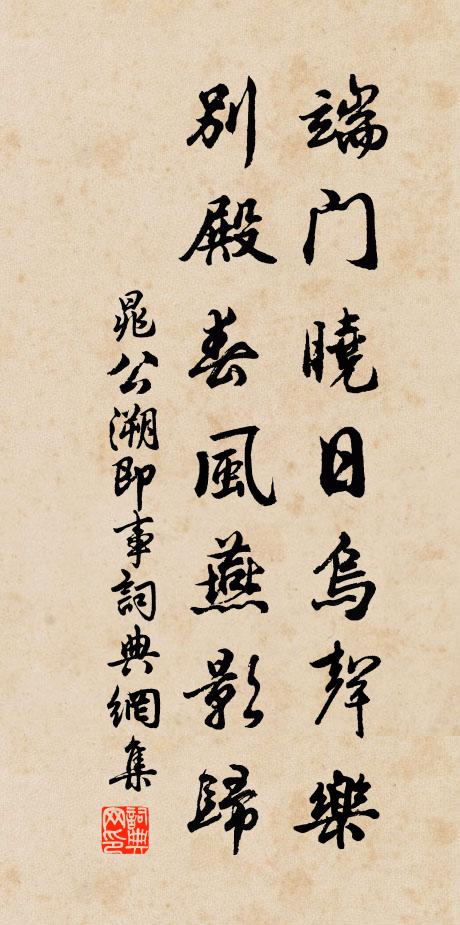 端門曉日烏聲樂
別殿春風燕影歸
晁公溯即事詞典網集
詞典网印